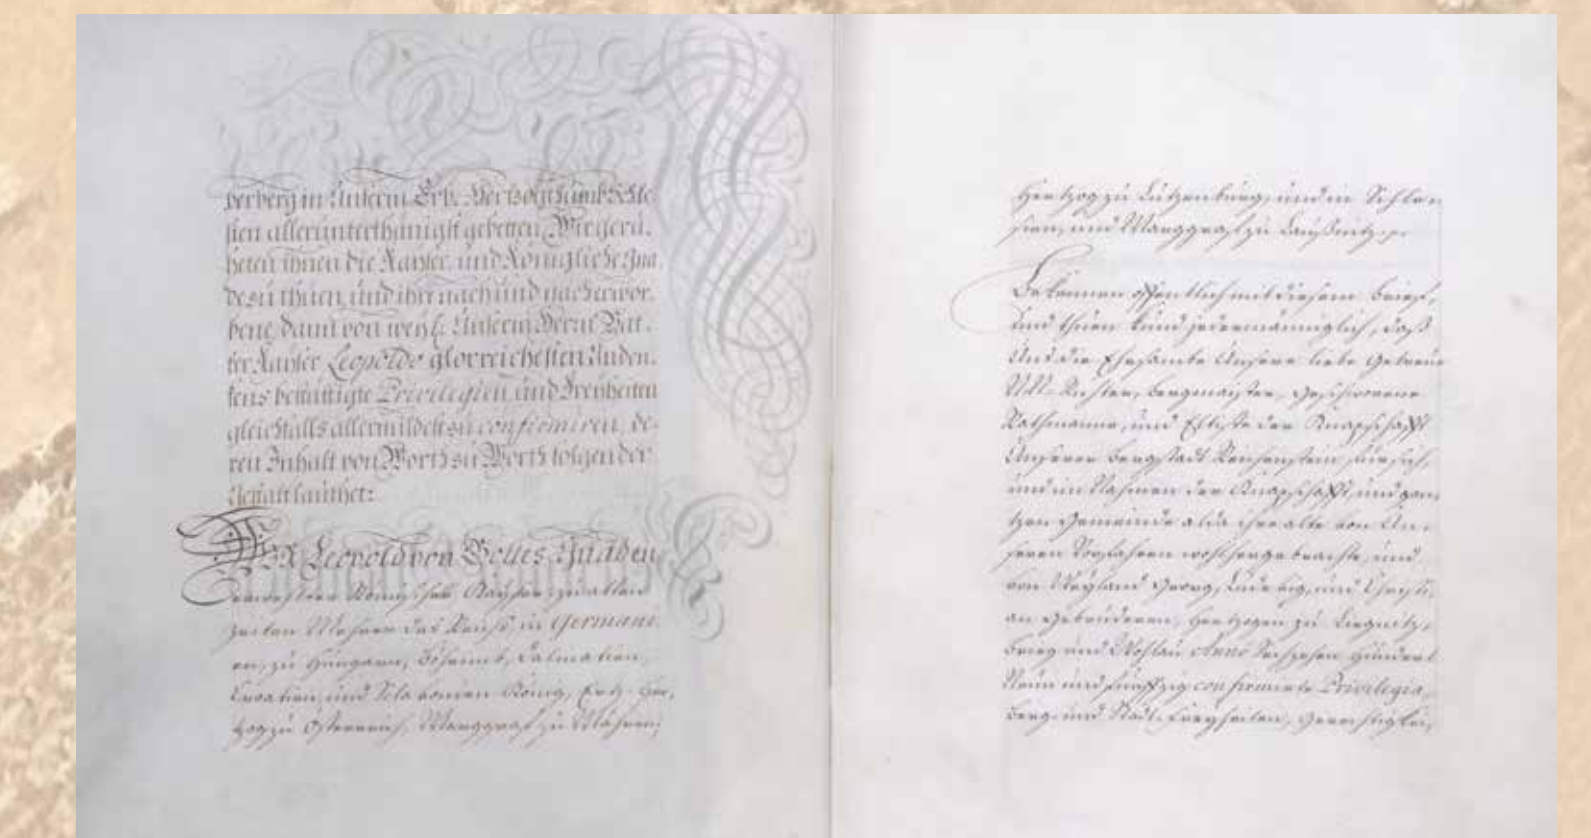 berberg in Unserm Erb-Hertzogthumb Schle
sien allerunterthänigst gebetten, Wir geru.
heten ihnen die Kayser. und Königliche Gna
de zu thuen, und ihre nach und nach erwor.
bene, dann von weyl: Unserm Herrn Vat.
ter Kayser Leopoldo glorreichesten Anden.
kens bestättigte Privilegien, und Freyheiten
gleichfalls allermildest zu confirmiren, de-
ren Inhalt von Worth zu Worth folgender
Gestalt lauthet:
WIR Leopold von Gottes Gnaden
erwehlter Römischer Kayser, zu allen
Zeiten Mehrer des Reichs, in Germani-
en, zu Hungarn, Böheimb, Dalmatien,
Croatien, und Sclavonien König, Ertz-Her,
zog zu Österreich, Marggraf zu Mähren,
Hertzog zu Lützenburg, und in Schle-
sien, und Marggraf zu Laußnitz
Bekennen öffentlich mit diesem Brief,
und thuen kund jedermänniglich, daß
Uns die Ehrsambe Unsere liebe Getreue
NN. Richter, Bergmeister, Geschworene
Rathmanne, und Eltiste der Knapschafft
Unserer Bergstadt Reichenstein für sich,
und im Nahmen der Knapschafft, und gan
tzen Gemeinde alda ihre alte von Un-
seren Vorfahren wohlhergebrachte, und
von Weyland Georg, Ludwig, und Christi-
an Gebrüderen, Hertzogen zu Liegnitz,
Brieg und Wohlau Anno Sechzehen Hundert
Neun und fünffzig confirmirte Privilegia,
Berg- und Stadt-Freyheiten, Gerechtigkei,